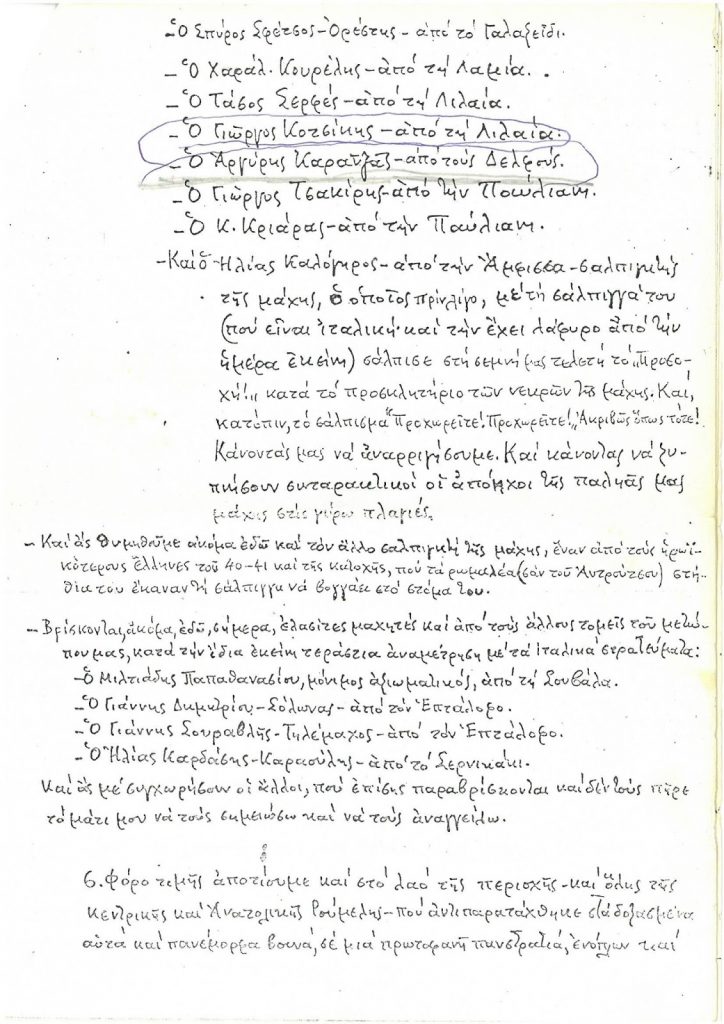 -Ὁ Σπύρος Σφέτσος-Ὀρέστης-ἀπό τό Γαλαξεῖδι.
-Ὁ Χαράλ. Κουρέλης-ἀπό τή Λαμία.
-Ὁ Τάσος Σερφές-ἀπό τή Λιλαία.
-Ὁ Γιῶργος Κοτσίκης-ἀπό τή Λιλαία.
-Ὁ Ἀργύρης Καραϊζᾶς-ἀπό τούς Δελφούς.
-Ὁ Γιῶργος Τσακίρης-ἀπό τήν Παύλιανη.
-Ὁ Κ. Κριάρας-ἀπό τήν Παύλιανη.
-Καί ὁ Ἠλίας Καλόγηρος-ἀπό τήν Ἄμφισσα-σαλπιγκτής
τῆς μάχης, ὁ ὁποῖος πρίν λίγο, μέ τή σάλπιγγά του
(πού εἶναι ἰταλική καί τήν ἔχει λάφυρο ἀπό τήν
ἡμέρα ἐκείνη) σάλπισε στή σεμνή μας τελετή τό "Προσο-
χή!" κατά τό προσκλητήριο τῶν νεκρῶν τῆς μάχης. Καί,
κατόπιν, τό σάλπισμα "Προχωρεῖτε! Προχωρεῖτε!" Ἀκριβῶς ὅπως τότε!
Κάνοντάς μας νά ἀναρριγήσουμε. Καί κάνοντας νά ξυ-
πνήσουν συνταρακτικοί οἱ ἀπόηχοι τῆς παληᾶς μας
μάχης στίς γύρω πλαγιές.
-Καί ἄς θυμηθοῦμε ἀκόμα ἐδῶ καί τόν ἄλλο σαλπιγκτή τῆς μάχης, ἕναν ἀπό τούς ἡρωϊ-
κότερους Ἕλληνες τοῦ 40-41 καί τῆς κατοχῆς, πού τά ρωμαλέα (σάν τοῦ Ἀντρούτσου) στή-
θια του ἔκαναν τή σάλπιγγα νά βογγάει στό στόμα του.
-Βρίσκονται, ἀκόμα, ἐδῶ, σήμερα, ἐλασίτες μαχητές καί ἀπό τούς ἄλλους τομεῖς τοῦ μετώ-
που μας, κατά τήν ἴδια ἐκείνη τεράστια ἀναμέτρηση μέ τά ἰταλικά στρατεύματα:
-Ὁ Μιλτιάδης Παπαθανασίου, μόνιμος ἀξιωματικός, ἀπό τή Σουβάλα.
-Ὁ Γιάννης Δημητρίου-Σόλωνας-ἀπό τόν Ἐπτάλοφο.
-Ὁ Γιάννης Σουραβλῆς-Τηλέμαχος-ἀπό τόν Ἐπτάλοφο.
-Ὁ Ἠλίας Καρδάσης-Καραούλης-ἀπό τό Σερνικάκι.
Καί ἄς μέ συγχωρήσουν οἱ ἄλλοι, πού ἐπίσης παραβρίσκονται καί δέν τούς πῆρε
τό μάτι μου νά τούς σημειώσω καί νά τούς ἀναγγείλω.
6. Φόρο τιμῆς ἀποτίουμε καί στό λαό τῆς περιοχῆς-καί ὅλης τῆς
Κεντρικῆς καί Ἀνατολικῆς Ρούμελης-πού ἀντιπαρατάχθηκε στά δοξασμένα
αὐτά καί πανέμορφα βουνά, σέ μιά πρωτοφανῆ πανστρατιά, ἐνόπλων